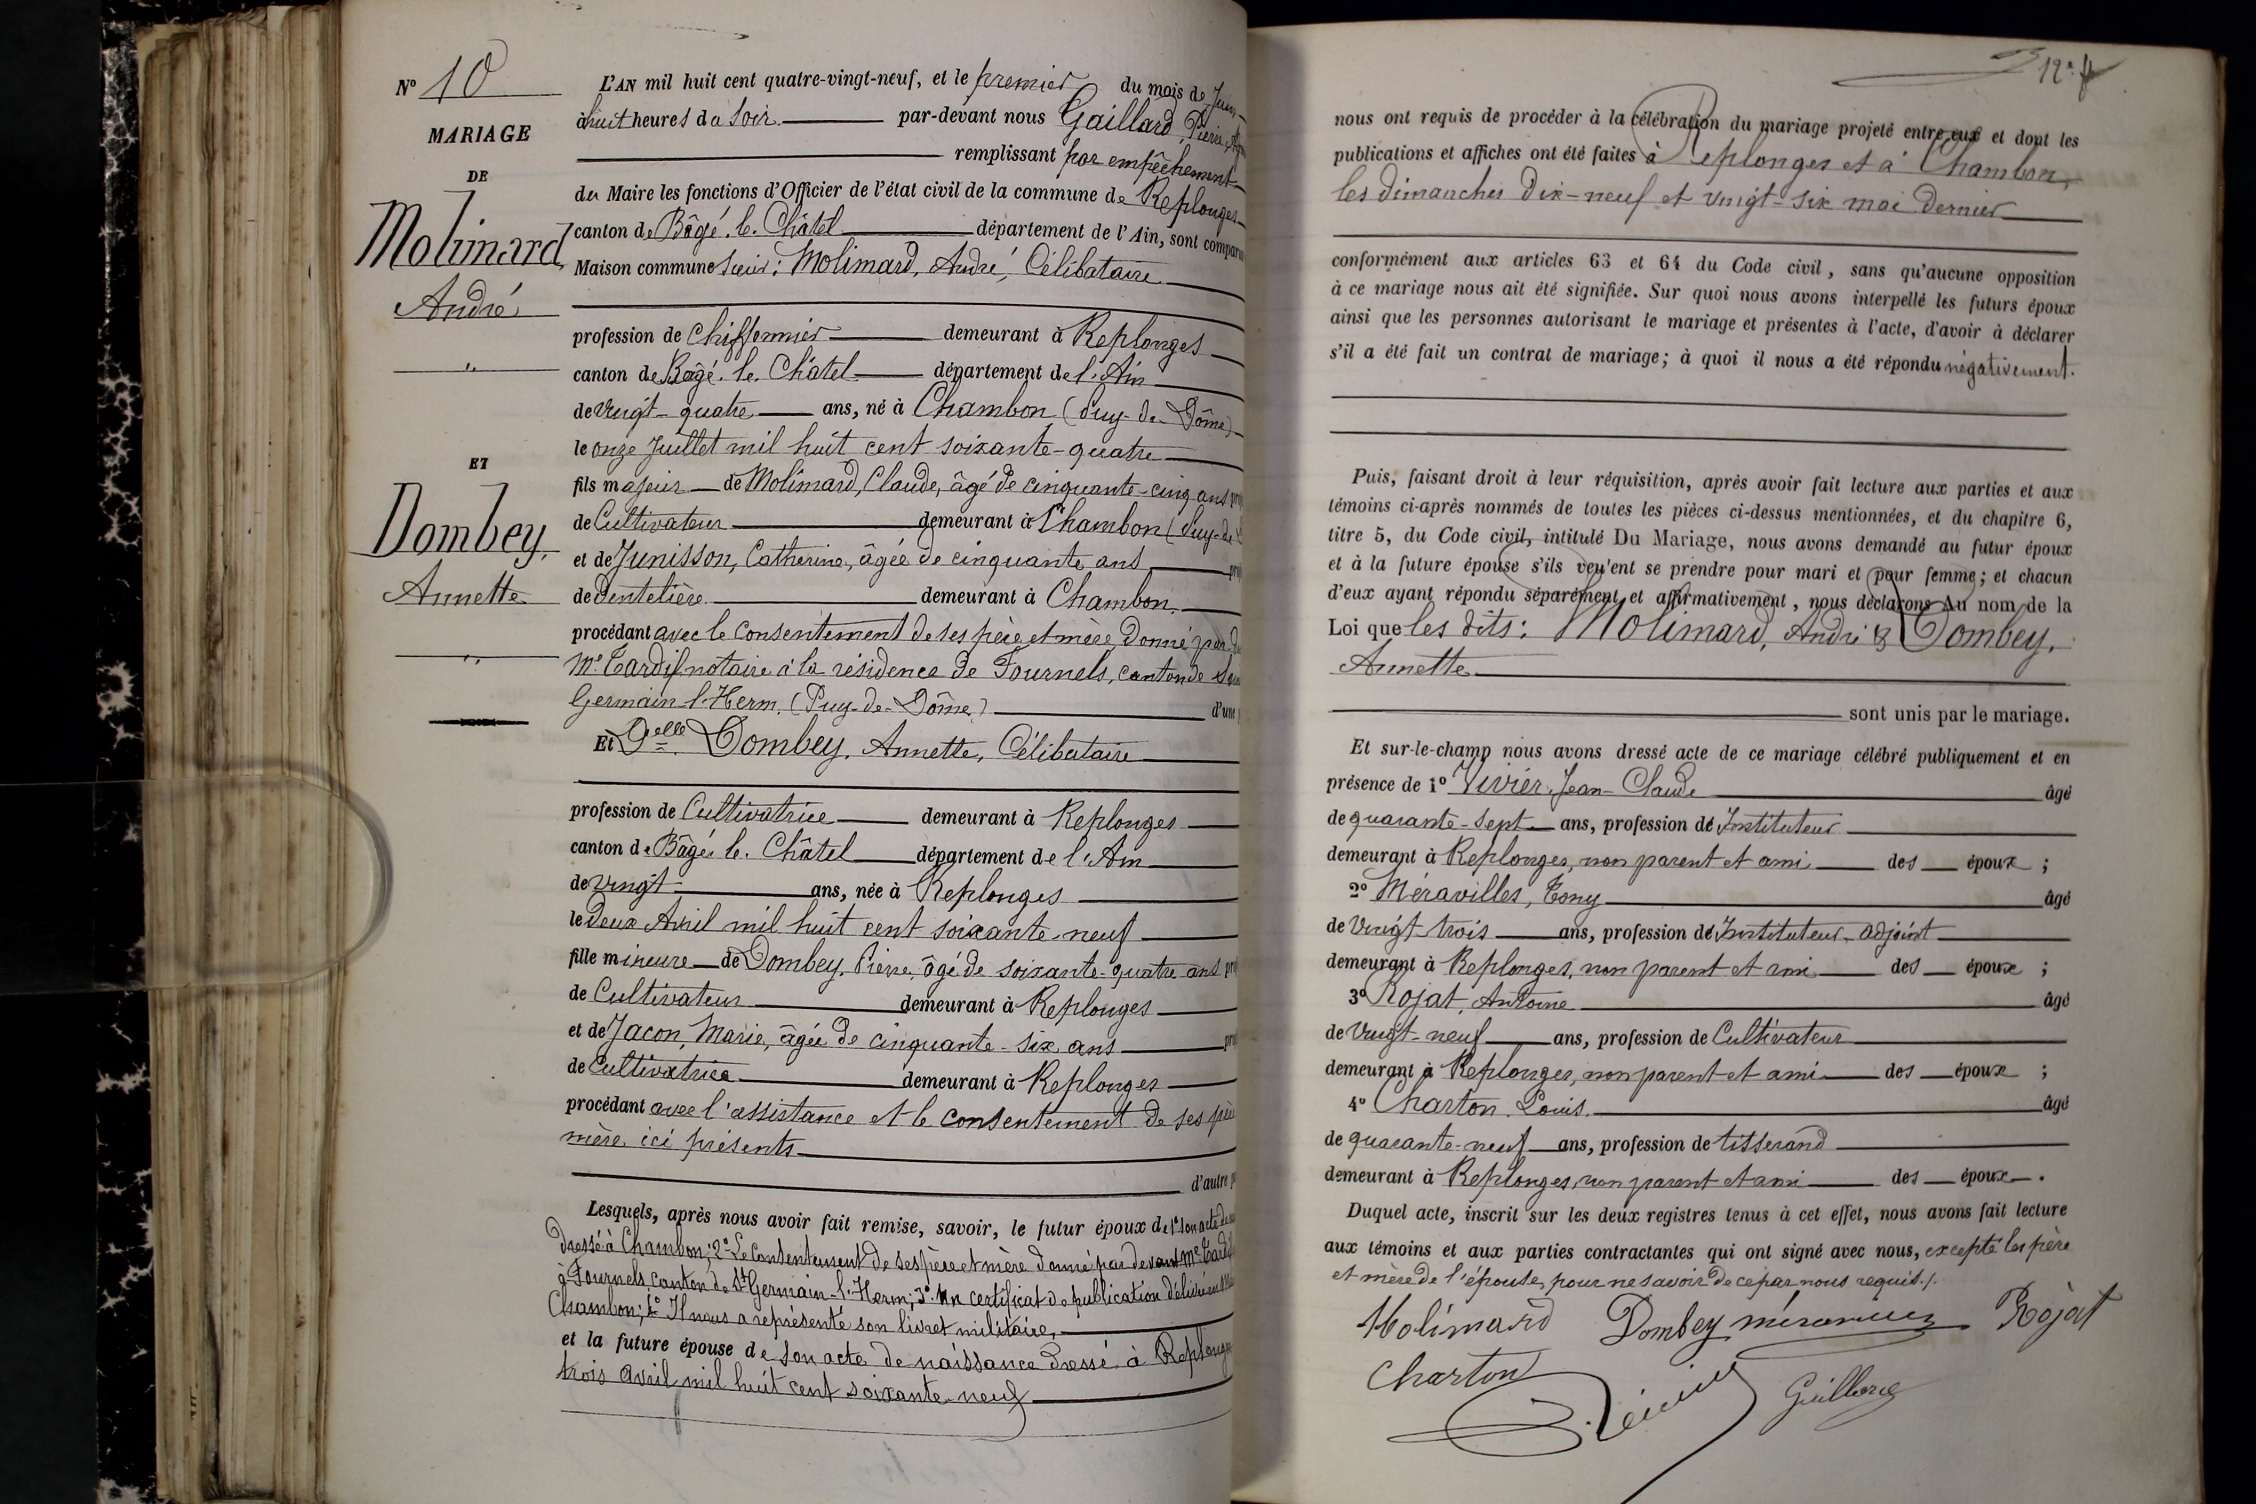 N° 10
MARIAGE
DE
Molimard,
André
"
ET
Dombey,
Annette
"
L'AN mil huit cent quatre-vingt-neuf, et le premier du mois de Juin
à huit heures du soir par-devant nous Gaillard, Pierre,
remplissant par empêchement
du Maire les fonctions d'Officier de l'état civil de la commune de Replonges
canton de Bâgé-le-Châtel département de l'Ain, sont comparus
Maison commune sieur: Molimard, André, Célibataire
profession de Chiffonnier demeurant à Replonges
canton de Bâgé-le-Châtel département de l'Ain
de vingt-quatre ans, né à Chambon (Puy-de-Dôme)
le onze Juillet mil huit cent soixante-quatre
fils majeur de Molimard, Claude, âgé de cinquante-cinq ans
de Cultivateur demeurant à Chambon (Puy-de-
et de Junisson, Catherine, âgée de cinquante ans
de dentelière demeurant à Chambon,
procédant avec le consentement de ses père et mère donné par
Me Tardif notaire à la résidence de Fournels, canton de
Germain-l'Herm, (Puy-de-Dôme) d'une
Et Delle Dombey, Annette, Célibataire
profession de Cultivatrice demeurant à Replonges
canton de Bâgé-le-Châtel département de l'Ain
de vingt ans, née à Replonges
le deux Avril mil huit cent soixante-neuf
fille mineure de Dombey, Pierre, âgé de soixante-quatre ans
de Cultivateur demeurant à Replonges
et de Jacon, Marie, âgée de cinquante-six ans
de Cultivatrice demeurant à Replonges
procédant avec l'assistance et le consentement de ses père
mère ici présents
d'autre
Lesquels, après nous avoir fait remise, savoir, le futur époux de 1° son acte de
dressé à Chambon; 2° Le consentement de ses père et mère donné par devant Me Tardif
à Fournels, canton de St Germain-l'Herm; 3° Un certificat de publication délivré
Chambon; 4° Il nous a représenté son livret militaire,
et la future épouse de son acte de naissance dressé à Replonges
trois avril mil huit cent soixante-neuf
12e
nous ont requis de procéder à la célébration du mariage projeté entre eux et dont les
publications et affiches ont été faites à Replonges et à Chambon,
les dimanches dix-neuf et vingt-six mai dernier
conformément aux articles 63 et 64 du Code civil, sans qu'aucune opposition
à ce mariage nous ait été signifiée. Sur quoi nous avons interpellé les futurs époux
ainsi que les personnes autorisant le mariage et présentes à l'acte, d'avoir à déclarer
s'il a été fait un contrat de mariage; à quoi il nous a été répondu négativement.
Puis, faisant droit à leur réquisition, après avoir fait lecture aux parties et aux
témoins ci-après nommés de toutes les pièces ci-dessus mentionnées, et du chapitre 6,
titre 5, du Code civil, intitulé Du Mariage, nous avons demandé au futur époux
et à la future épouse s'ils veulent se prendre pour mari et pour femme; et chacun
d'eux ayant répondu séparément et affirmativement, nous déclarons Au nom de la
Loi que les dits: Molimard, André & Dombey,
Annette
sont unis par le mariage.
Et sur-le-champ nous avons dressé acte de ce mariage célébré publiquement et en
présence de 1° Vivier, Jean-Claude âgé
de quarante-sept ans, profession de Instituteur
demeurant à Replonges, non parent et ami des époux;
2° Méravilles, Tony âgé
de vingt-trois ans, profession de Instituteur-adjoint
demeurant à Replonges, non parent et ami des époux;
3° Rojat, Antoine âgé
de vingt-neuf ans, profession de Cultivateur
demeurant à Replonges, non parent et ami des époux;
4° Charton, Louis, âgé
de quarante-neuf ans, profession de tisserand
demeurant à Replonges, non parent et ami des époux.
Duquel acte, inscrit sur les deux registres tenus à cet effet, nous avons fait lecture
aux témoins et aux parties contractantes qui ont signé avec nous, excepté les père
et mère de l'épouse, pour ne savoir de ce par nous requis./.
Molimard Dombey Rojat
Charton